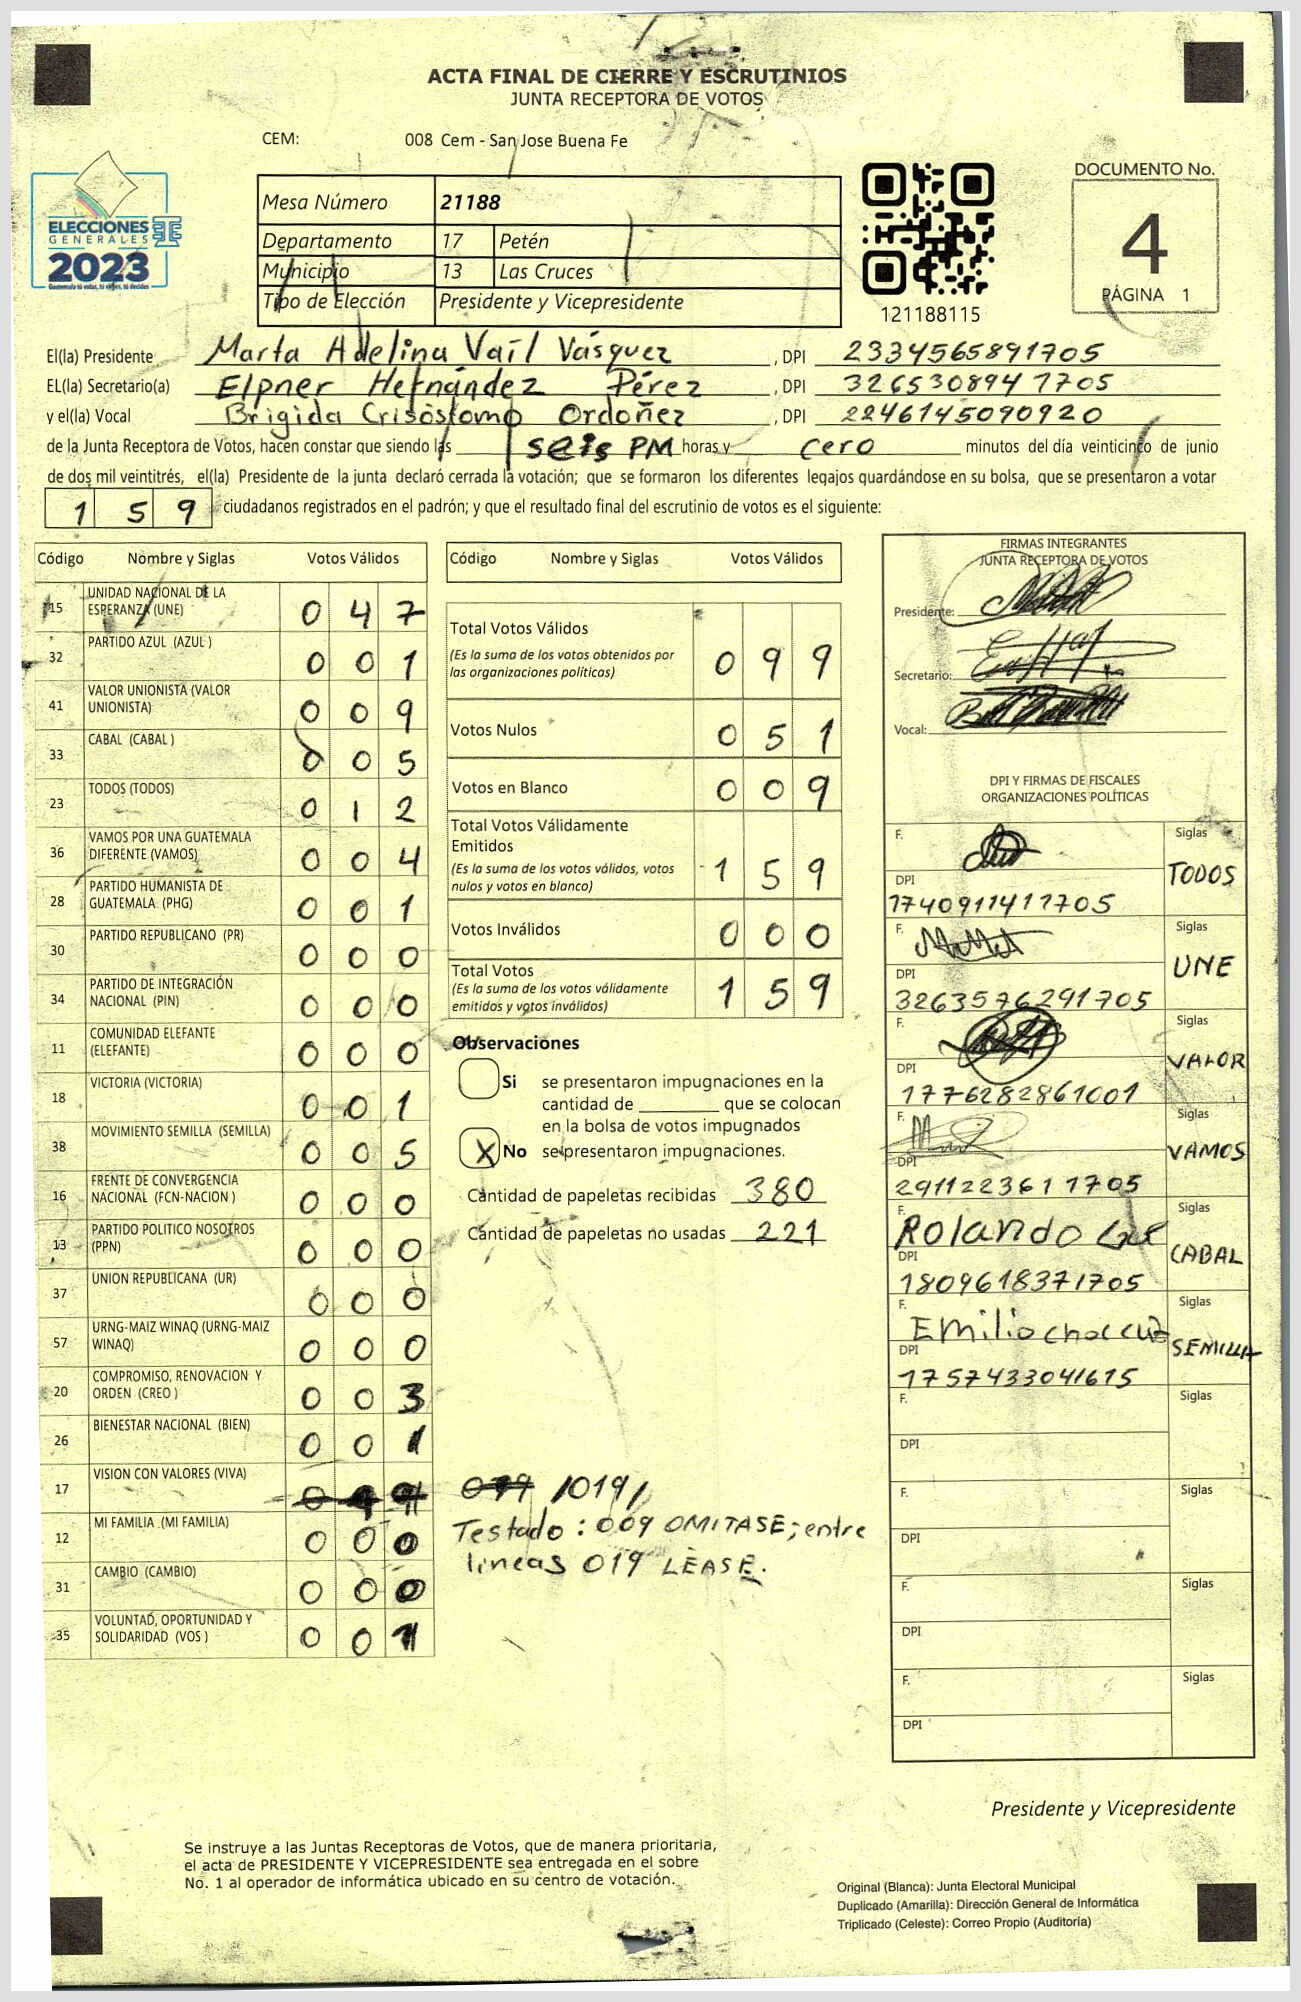 ACTA FINAL DE CIERRE Y ESCRUTINIOS
JUNTA RECEPTORA DE VOTOS
CEM: 008 Cem - San Jose Buena Fe
ELECCIONES
GENERALES
2023
Guatemala tú votas, tú eliges, tú decides
Mesa Número 21188
Departamento 17 Petén
Municipio 13 Las Cruces
Tipo de Elección Presidente y Vicepresidente
121188115
DOCUMENTO No.
4
PÁGINA 1
El(la) Presidente Marta Adelina Vaíl Vásquez , DPI 2334565891705
EL(la) Secretario(a) Elpner Hernández Pérez , DPI 3265308941705
y el(la) Vocal Brigida Crisóstomo Ordoñez , DPI 2246145090920
de la Junta Receptora de Votos, hacen constar que siendo las seis PM horas y cero minutos del día veinticinco de junio
de dos mil veintitrés, el(la) Presidente de la junta declaró cerrada la votación; que se formaron los diferentes legajos quardándose en su bolsa, que se presentaron a votar
1 5 9 ciudadanos registrados en el padrón; y que el resultado final del escrutinio de votos es el siguiente:
Código Nombre y Siglas Votos Válidos
15 UNIDAD NACIONAL DE LA ESPERANZA (UNE) 0 4 7
32 PARTIDO AZUL (AZUL ) 0 0 1
41 VALOR UNIONISTA (VALOR UNIONISTA) 0 0 9
33 CABAL (CABAL ) 0 0 5
23 TODOS (TODOS) 0 1 2
36 VAMOS POR UNA GUATEMALA DIFERENTE (VAMOS) 0 0 4
28 PARTIDO HUMANISTA DE GUATEMALA (PHG) 0 0 1
30 PARTIDO REPUBLICANO (PR) 0 0 0
34 PARTIDO DE INTEGRACIÓN NACIONAL (PIN) 0 0 0
11 COMUNIDAD ELEFANTE (ELEFANTE) 0 0 0
18 VICTORIA (VICTORIA) 0 0 1
38 MOVIMIENTO SEMILLA (SEMILLA) 0 0 5
16 FRENTE DE CONVERGENCIA NACIONAL (FCN-NACION ) 0 0 0
13 PARTIDO POLITICO NOSOTROS (PPN) 0 0 0
37 UNION REPUBLICANA (UR) 0 0 0
57 URNG-MAIZ WINAQ (URNG-MAIZ WINAQ) 0 0 0
20 COMPROMISO, RENOVACION Y ORDEN (CREO ) 0 0 3
26 BIENESTAR NACIONAL (BIEN) 0 0 1
17 VISION CON VALORES (VIVA)
12 MI FAMILIA (MI FAMILIA) 0 0 0
31 CAMBIO (CAMBIO) 0 0 0
35 VOLUNTAD, OPORTUNIDAD Y SOLIDARIDAD (VOS ) 0 0 1
Código Nombre y Siglas Votos Válidos
Total Votos Válidos 0 9 9
(Es la suma de los votos obtenidos por
las organizaciones políticas)
Votos Nulos 0 5 1
Votos en Blanco 0 0 9
Total Votos Válidamente
Emitidos 1 5 9
(Es la suma de los votos válidos, votos
nulos y votos en blanco)
Votos Inválidos 0 0 0
Total Votos 1 5 9
(Es la suma de los votos válidamente
emitidos y votos inválidos)
Observaciones
Si se presentaron impugnaciones en la
cantidad de ________ que se colocan
en la bolsa de votos impugnados
X No se presentaron impugnaciones.
Cantidad de papeletas recibidas 380
Cantidad de papeletas no usadas 221
/019/
Testado: 009 OMITASE; entre
lineas 019 LEASE.
FIRMAS INTEGRANTES
JUNTA RECEPTORA DE VOTOS
Presidente:
Secretario:
Vocal:
DPI Y FIRMAS DE FISCALES
ORGANIZACIONES POLÍTICAS
F. Siglas
TODOS
DPI
1740911411705
F. Siglas
UNE
DPI
3263576291705
F. Siglas
VALOR
DPI
1776282861001
F. Siglas
VAMOS
DPI
2911223611705
F. Siglas
Rolando
CABAL
DPI
1809618371705
F. Siglas
Emilio
SEMILLA
DPI
1757433041615
F. Siglas
DPI
F. Siglas
DPI
F. Siglas
DPI
F. Siglas
DPI
Presidente y Vicepresidente
Se instruye a las Juntas Receptoras de Votos, que de manera prioritaria,
el acta de PRESIDENTE Y VICEPRESIDENTE sea entregada en el sobre
No. 1 al operador de informática ubicado en su centro de votación.
Original (Blanca): Junta Electoral Municipal
Duplicado (Amarilla): Dirección General de Informática
Triplicado (Celeste): Correo Propio (Auditoría)